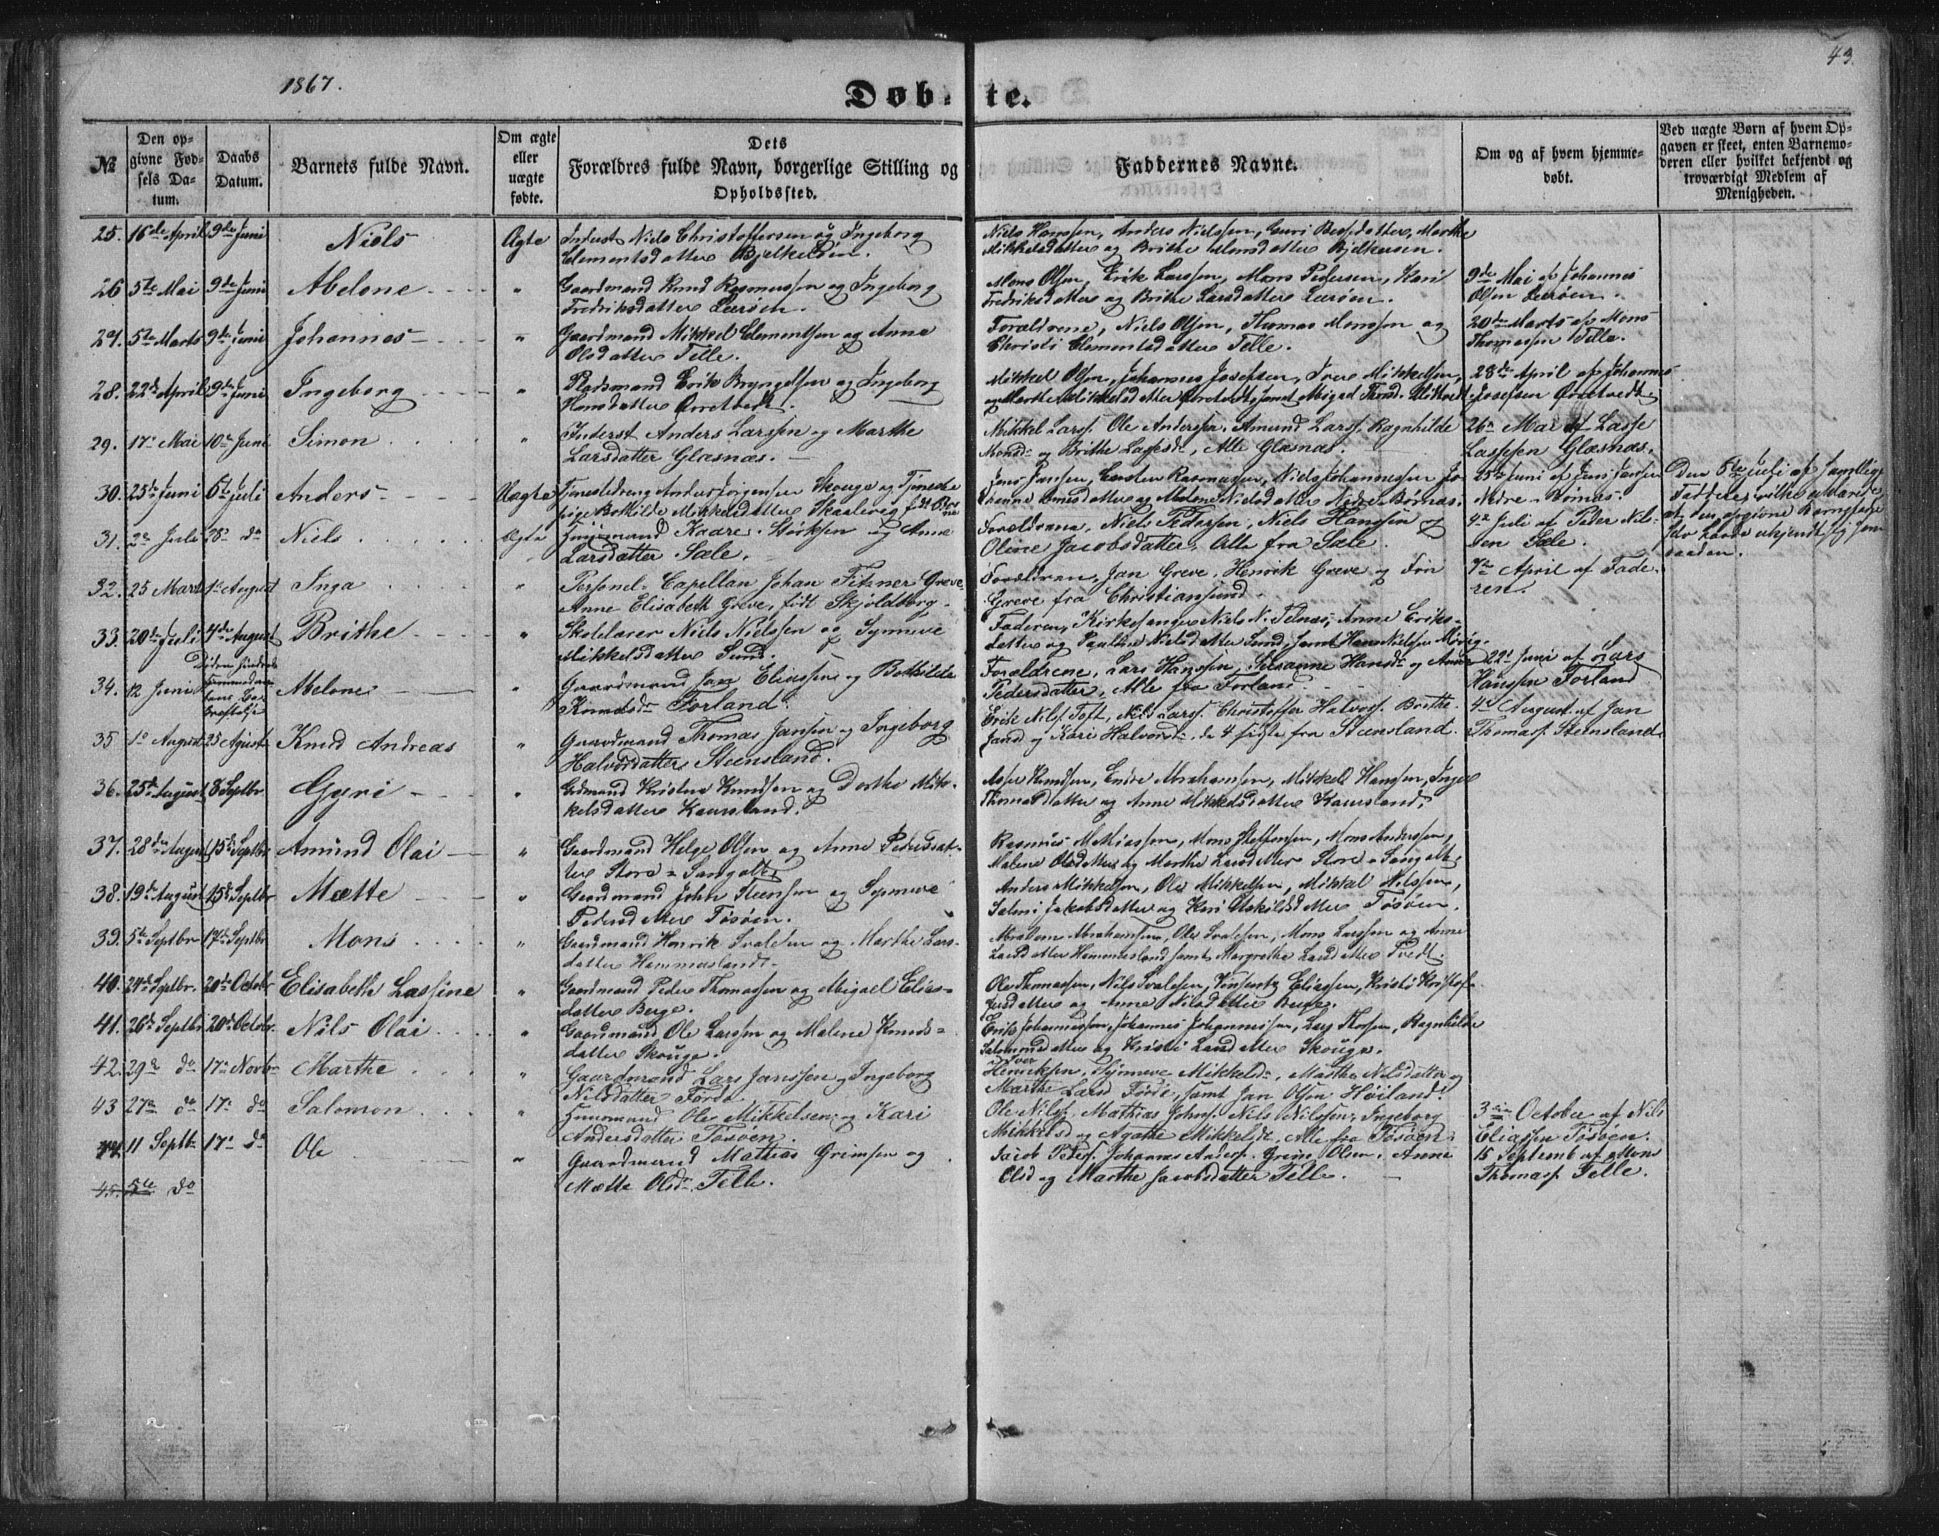 43.
1867.
Døbte.
№
Den opgivne Fødsels Datum.
Daabs Datum.
Barnets fulde Navn.
Om ægte eller uægte fødte.
Dets Forældres fulde Navn, borgerlige Stilling og Opholdssted.
Faddernes Navne.
Om og af hvem hjemmedøbt.
Ved uægte Børn af hvem Opgaven er skeet, enten Barnemoderen eller hvilket bekjendt og troværdigt Medlem af Menigheden.
25. 16de April 9de Juni Niels Ægte Inderst Niels Christoffersen og Ingeborg
Clementsdatter
Niels Hanssen, Anders Nielssen, Marthe
Mikkelsdatter og Brithe
26 5te Mai 9de Juni Abelone " Gaardmand Knud Rasmussen og Ingeborg
Fredriksdatter Lerøen.
Mons Olsen, Erik Larssen, Mons Pedersen, Kari
Fredriksdatter og Brithe Larsdatter Lerøen.
9de Mai af Johannes
Olsen Lerøen.
27. 5te Marts 9de Juni Johannes " Gaardmand Mikkel Clementsen og Anna
Olsdatter Telle.
Forældrene, Niels Olsen, Thomas Monssen og
Christi Clementsdatter Telle.
20de Marts af Mons
Thomassen Telle.
28. 22de April 9de Juni Ingeborg " Pladsmand Erik Bryngelsen og Ingeborg
Hansdatter
Mikkel Olsen, Johannes Josefsen, Iver Mikkelsen,
og Marthe Mikkelsdatter
28de April af Johannes
Josefsen
29. 17. Mai 10de Juni Simon " Inderst Anders Larssen og Marthe
Larsdatter Glæsnæs.
Mikkel Larss. Ole Anderssen. Amund Larss. Ragnhilde
Monsd. og Brithe Alle Glæsnæs.
26 Mai af Lasse
Lassesen Glæsnæs.
30. 25de Juni 6te Juli Anders Uægte Tjenestedreng Anders Jørgensen Skouge og Tjeneste
pige Bothilde Mikkelsdatter
Jens Jansen, Carsten Rasmussen, Niels Johannessen
og Malene Nielsdatter Nedre-
25de Juni af Jens Jansen
Nedre-
Den 6te Juli af samtlige
Faddere,
31. 2. Juli 28. do Niels Ægte Kaare Størksen og Anne
Larsdatter Sæle.
Forældrene, Niels Pedersen, Niels Hanssen og
Oline Jacobsdatter. Alle fra Sæle.
4de Juli af Peder Nilsen
Sæle.
32. 25 Marts 1. August Inga " Personel-Capellan Johan Fitzner Greve
Anne Elisabeth Greve, født Skjoldborg.
Forældrene, Jan Greve, Henrik Greve og Frøken
Greve fra Christiansund.
7de April af Faderen.
33. 20de Juli 4de August Brithe " Skolelærer Niels Nielssen og Synneve
Mikkelsdatter Sund.
Faderen, Kirkesanger Niels N. Telnæs, Anne Eriksdatter
og Pauline Nielsdatter Sund, samt Hans Nielsen
34. 12 Juni Abelone " Gaardmand Elias og Bothilde
Knudsdr. Forland.
Forældrene, Lars Hanssen, Susanne Hansdr. og Anna
Pedersdatter, Alle fra Forland.
22. Juni af Lars
Hanssen Forland
35 1. August 25 August Knud Andreas " Gaardmand Thomas Jansen og Ingeborg
Halvorsdatter Steensland.
Erik Nilss. Toft, Nils Larss. Christoffer Halvors. Brithe
Jansd. og Kari Halvorsdr. de 4 sidste fra Steensland.
4de August af Jan
Thomass. Steensland.
36. 25de August 8 Septbr. Guri " Gdmand Kristen Knudsen og Dorthe Mikkelsdatter
Knudsen, Endre Abrahamsen, Mikkel Hanssen, Inger
Thomasdatter og Anne Mikkelsdatter
37. 28de August 15de Septbr Amund Olai " Gaardmand Helge Olsen og Anne Pedersdatter
Store-Sangolt
Rasmus Mathiassen, Mons Steffensen, Mons Anderssen,
Malene Olsdatter og Marthe Larsdatter Store-Sangolt.
38. 19de August 15de Septbr. Mætte " Gaardmand John Steensen og Synneve
Pedersdatter Tøsøen.
Anders Mikkelsen, Ole Mikkelsen, Mikkel Nilssen,
Salmi Jakobsdatter og Kari Tøsøen.
39. 5te Septbr 17de Septbr Mons " Gaardmand Henrik Ivalsen og Marthe Larsdatter
Hammersland.
Abraham Abrahamsen, Ole Ivalsen, Mons Larssen og Anne
Larsdatter Hammersland samt Margrethe Larsdatter Tvedt.
40. 24de Septbr. 20de Octobr Elisabeth Lassine " Gaardmand Peder Thomassen og Abigael Eliasdatter
Berge.
Ole Thomassen, Nils Ivalsen, Vinsents Eliassen, Kristi Kristofersdatter
og Anne Nilsdatter Berge.
41. 26de Septbr 20de Octobr Nils Olai " Gaardmand Ole Larssen og Malene Knudsdatter
Skouge.
Erik Johannessen, Johannes Johannessen, Lars Thorsen, Ragnhilde
Salomonsdatter og Kristi Larsdatter Skouge.
42. 29de do 17de Novbr Marthe " Gaardmand Lars Janssen og Ingeborg
Nilsdatter Førde.
Iver
Henriksen, Synneve Mikkelsdr. Marthe Nilsdatter og
Marthe Larsd. Førde, samt Jan Olsen Høiland.
43 27de do 17. do Salomon " Huusmand Ole Mikkelsen og Kari
Andersdatter Tøsøen.
Ole Nilss. Mathias Johns. Nils Nilssen, Ingeborg
Mikkelsd og Agathe Mikkelsdr. Alle fra Tøsøen.
3die October af Nils
Eliassen Tøsøen.
44. 11 Septbr 17. do Ole " Gaardmand Mathias Grimsen og
Mætte Olsdr. Telle.
Jacob Peders. Johannes Anders. Grim Olsen. Anne
Olsd og Marthe Jacobsdatter Telle.
15 Septemb af Mons
Thomass. Telle.
45. 5te do